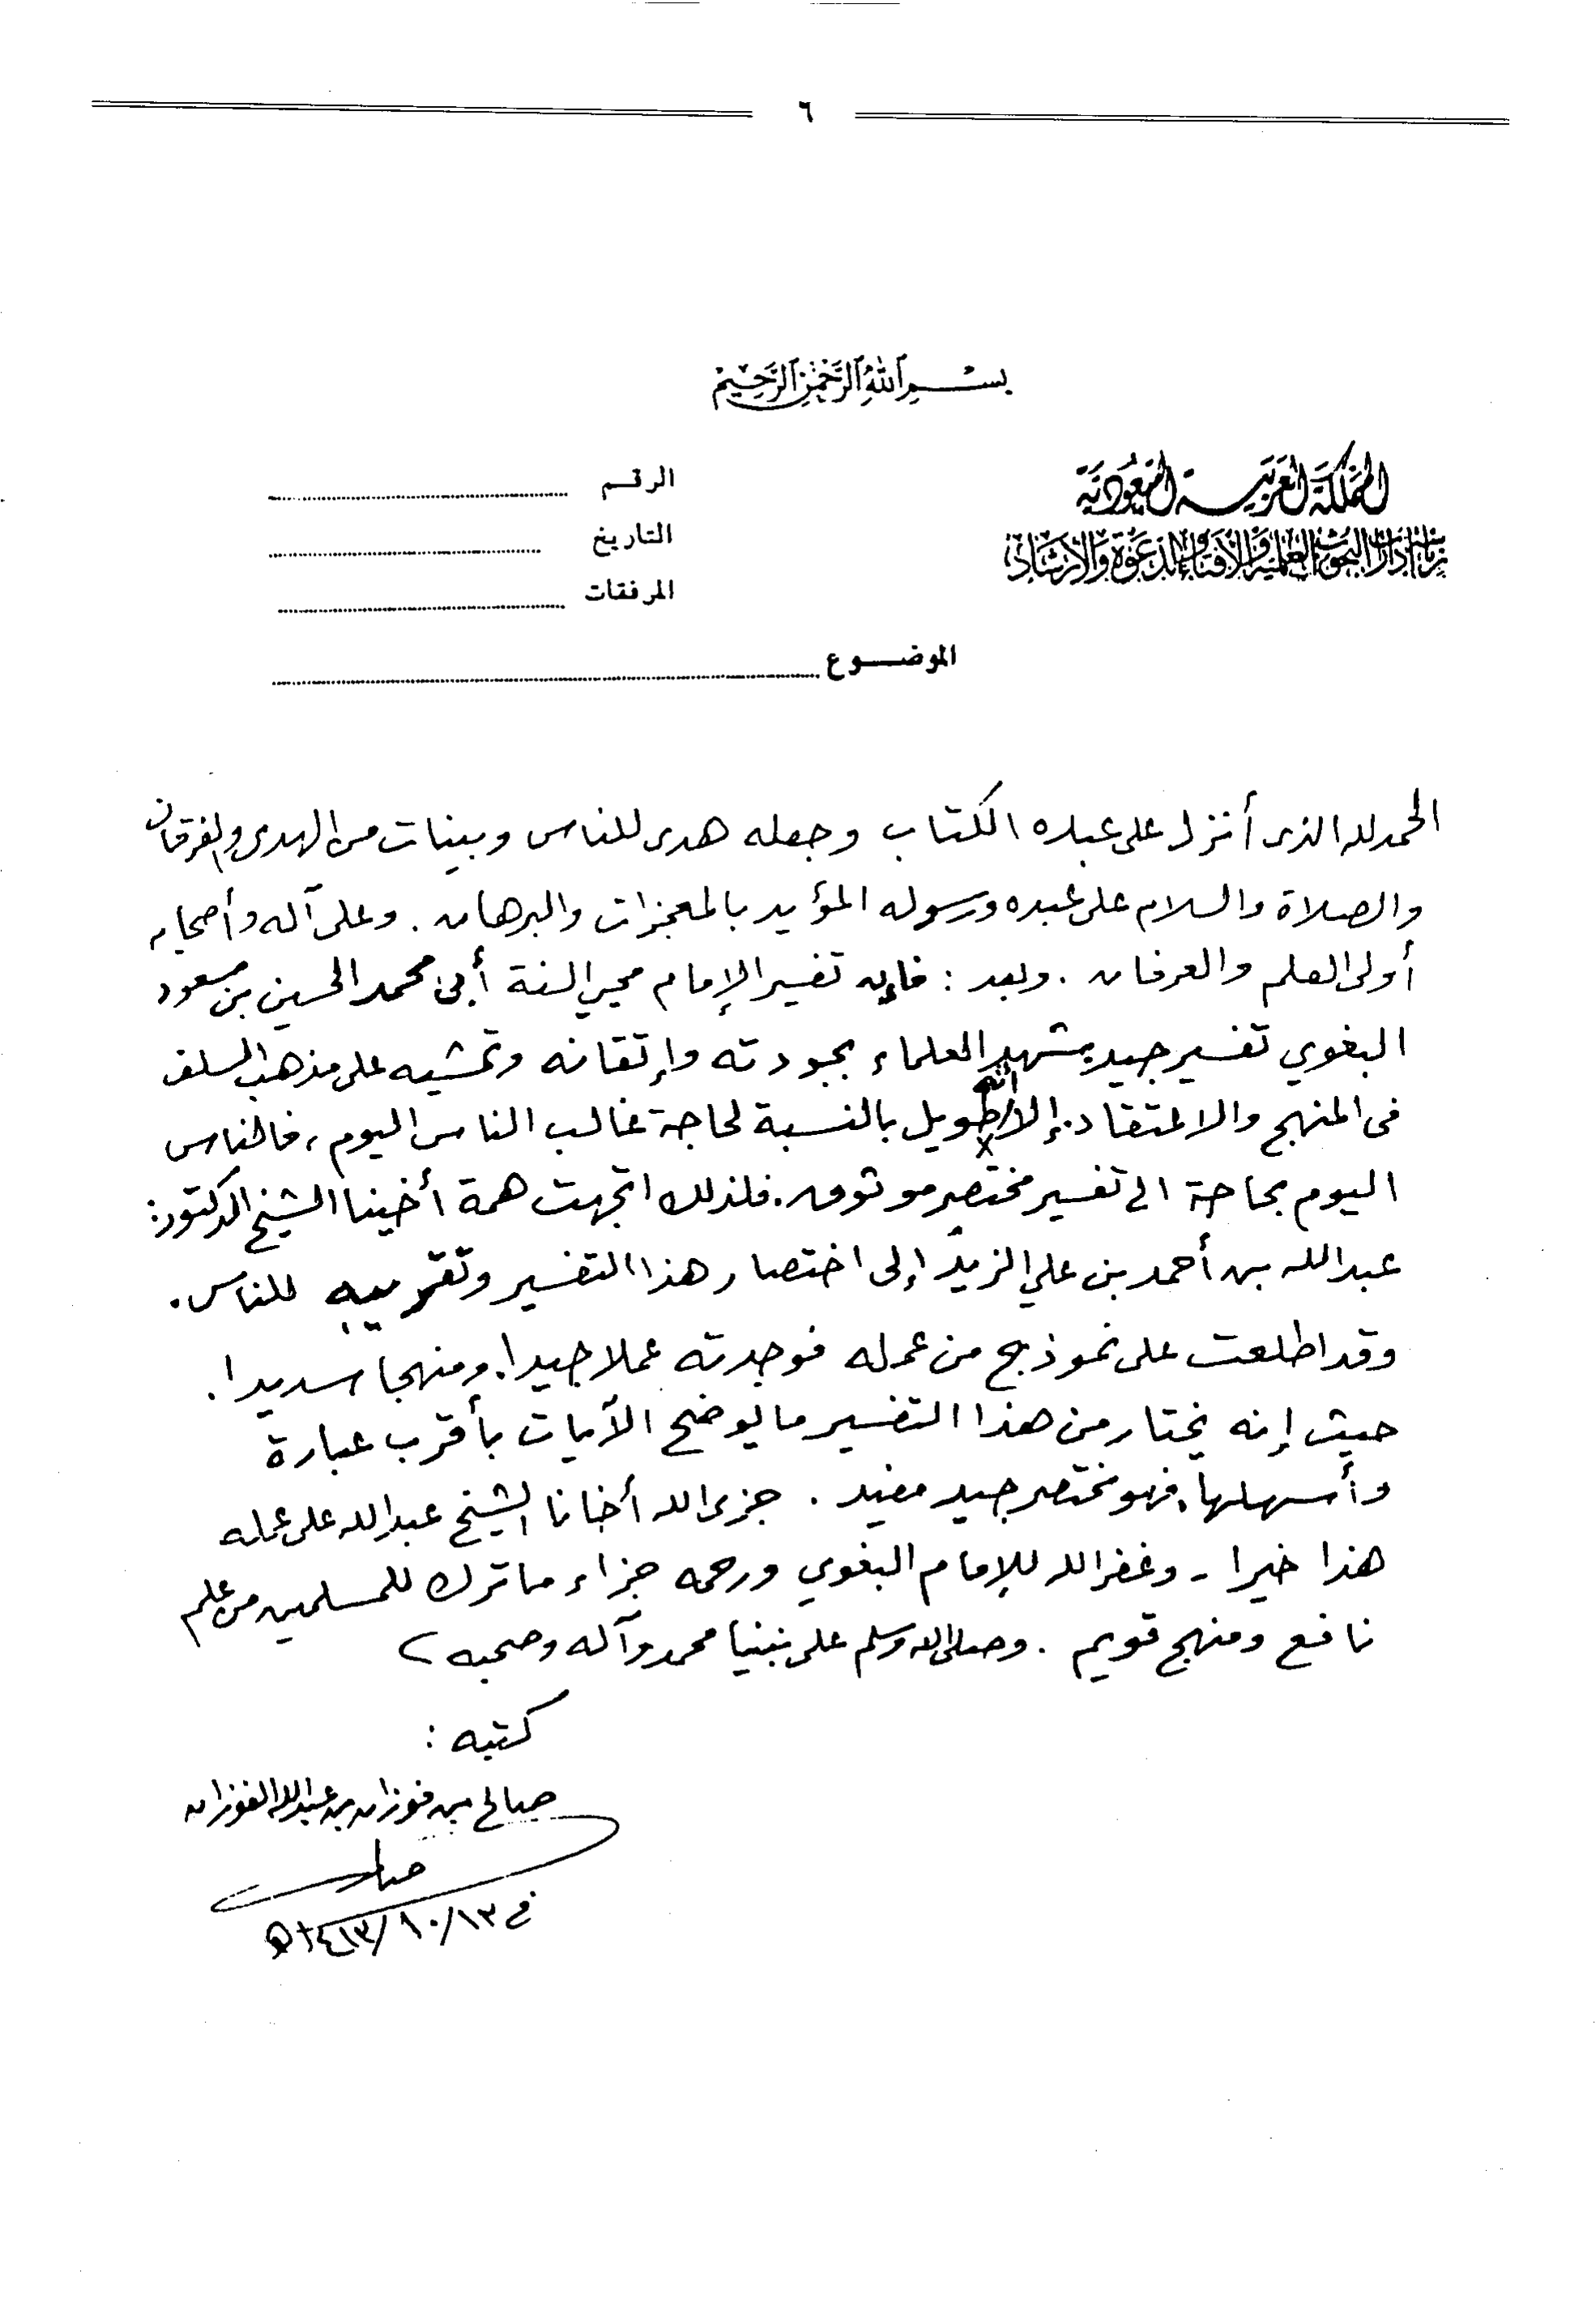 ٦
بسم الله الرحمن الرحيم
المملكة العربية السعودية
رئاسة إدارات البحوث العلمية والافتاء والدعوة والارشاد
الرقم
التاريخ
المرفقات
الموضوع
الحمد لله الذى أنزل على عبده الكتاب وجعله هدى للناس وبينات من الهدى والفرقان
والصلاة والسلام على عبده ورسوله المؤيد بالمعجزات والبرهان . وعلى آله وأصحابه
أولى العلم والعرفان . وبعد : فإن تفسير الإمام محيي السنة أبى محمد الحسين بن مسعود
البغوي تفسير جيد يشهد العلماء بجودته وإتقانه وتمشيه على مذهب السلف
فى المنهج والاعتقاد . إلا أنه طويل بالنسبة لحاجة غالب الناس اليوم ، فالناس
اليوم بحاجة الى تفسير مختصر موثوق . فلذلك اتجهت همة أخينا الشيخ الدكتور :
عبدالله بن أحمد بن علي الزيد إلى اختصار هذا التفسير وتقريبه للناس .
وقد اطلعت على نموذج من عمله فوجدته عملا جيدا . ومنهجا سديدا .
حيث إنه يختار من هذا التفسير ما يوضح الآيات بأقرب عبارة
وأسهلها . فهو مختصر جيد مفيد . جزى الله أخانا الشيخ عبدالله على عمله
هذا خيرا - وغفر الله للإمام البغوي ورحمه جزاء ما ترك للمسلمين من علم
نافع ومنهج قويم . وصلى الله وسلم على نبينا محمد وآله وصحبه
كتبه :
صالح بن فوزان بن عبدالله الفوزان
صالح
في ١٣/١٠/١٤١٣ه